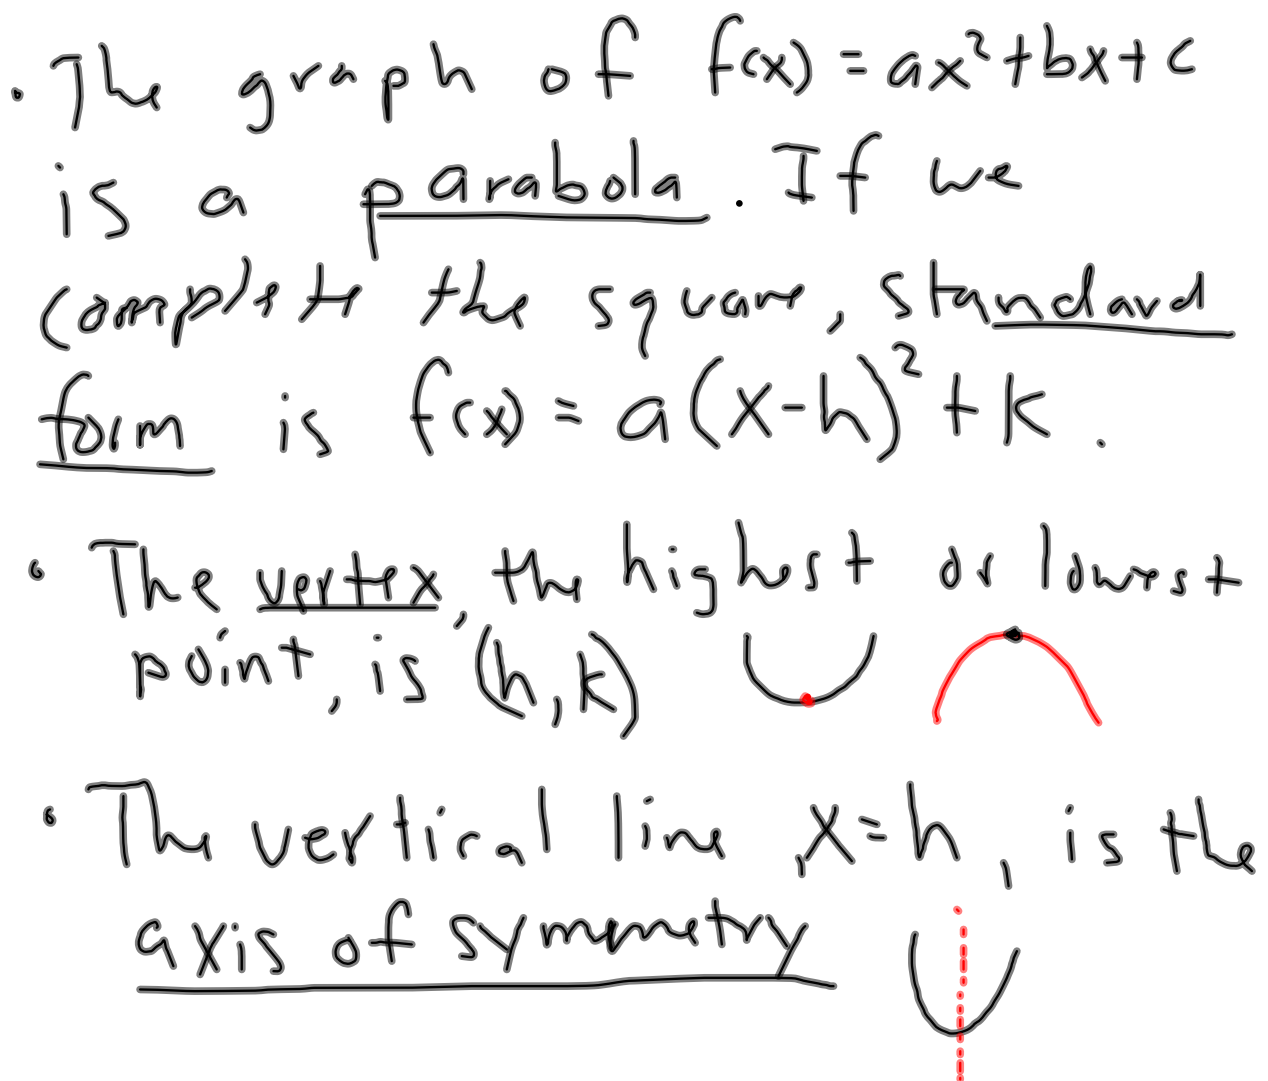 • The graph of f(x) = ax²+bx+c
is a parabola. If we
complete the square, standard
form is f(x) = a(x-h)²+k.
• The vertex, the highest or lowest
point, is (h,k)
• The vertical line, x=h, is the
axis of symmetry